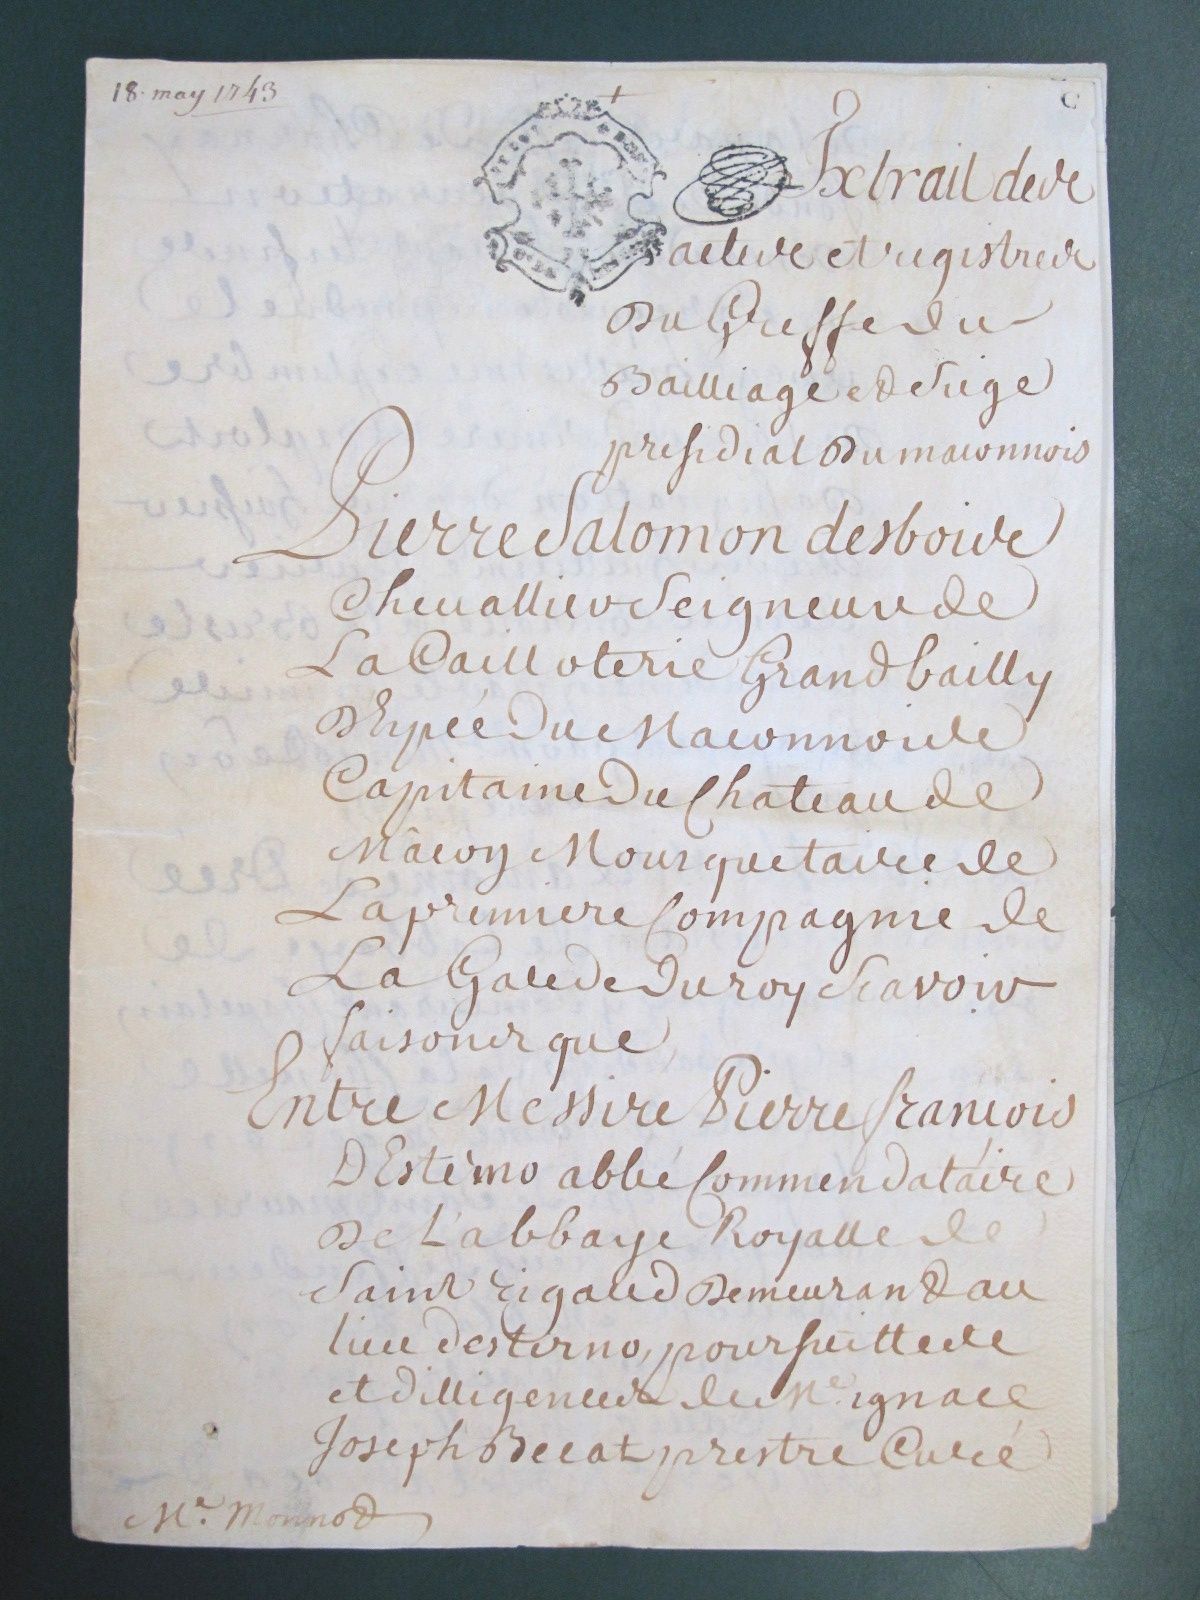 18. may 1743
C
Extrait des
actes et registres
Du Greffe du
Bailliage et Siege
presidial Du maconnois
Pierre Salomon desbois
Chevallier Seigneur de
La Cailloterie Grand bailly
d'Epée Du Maconnois
Capitaine Du Chateau de
Mâcon Mousquetaire de
La premiere Compagnie de
La Garde Du roy Scavoir
faisons que
Entre Messire Pierre françois
DEsterno abbé Commendataire
De L'abbaye Royalle de
Saint rigaud Demeurand au
lieu desterno, poursuittes
et dilligences de Me. ignace
Joseph Becat prestre Curé
Me. Monnod